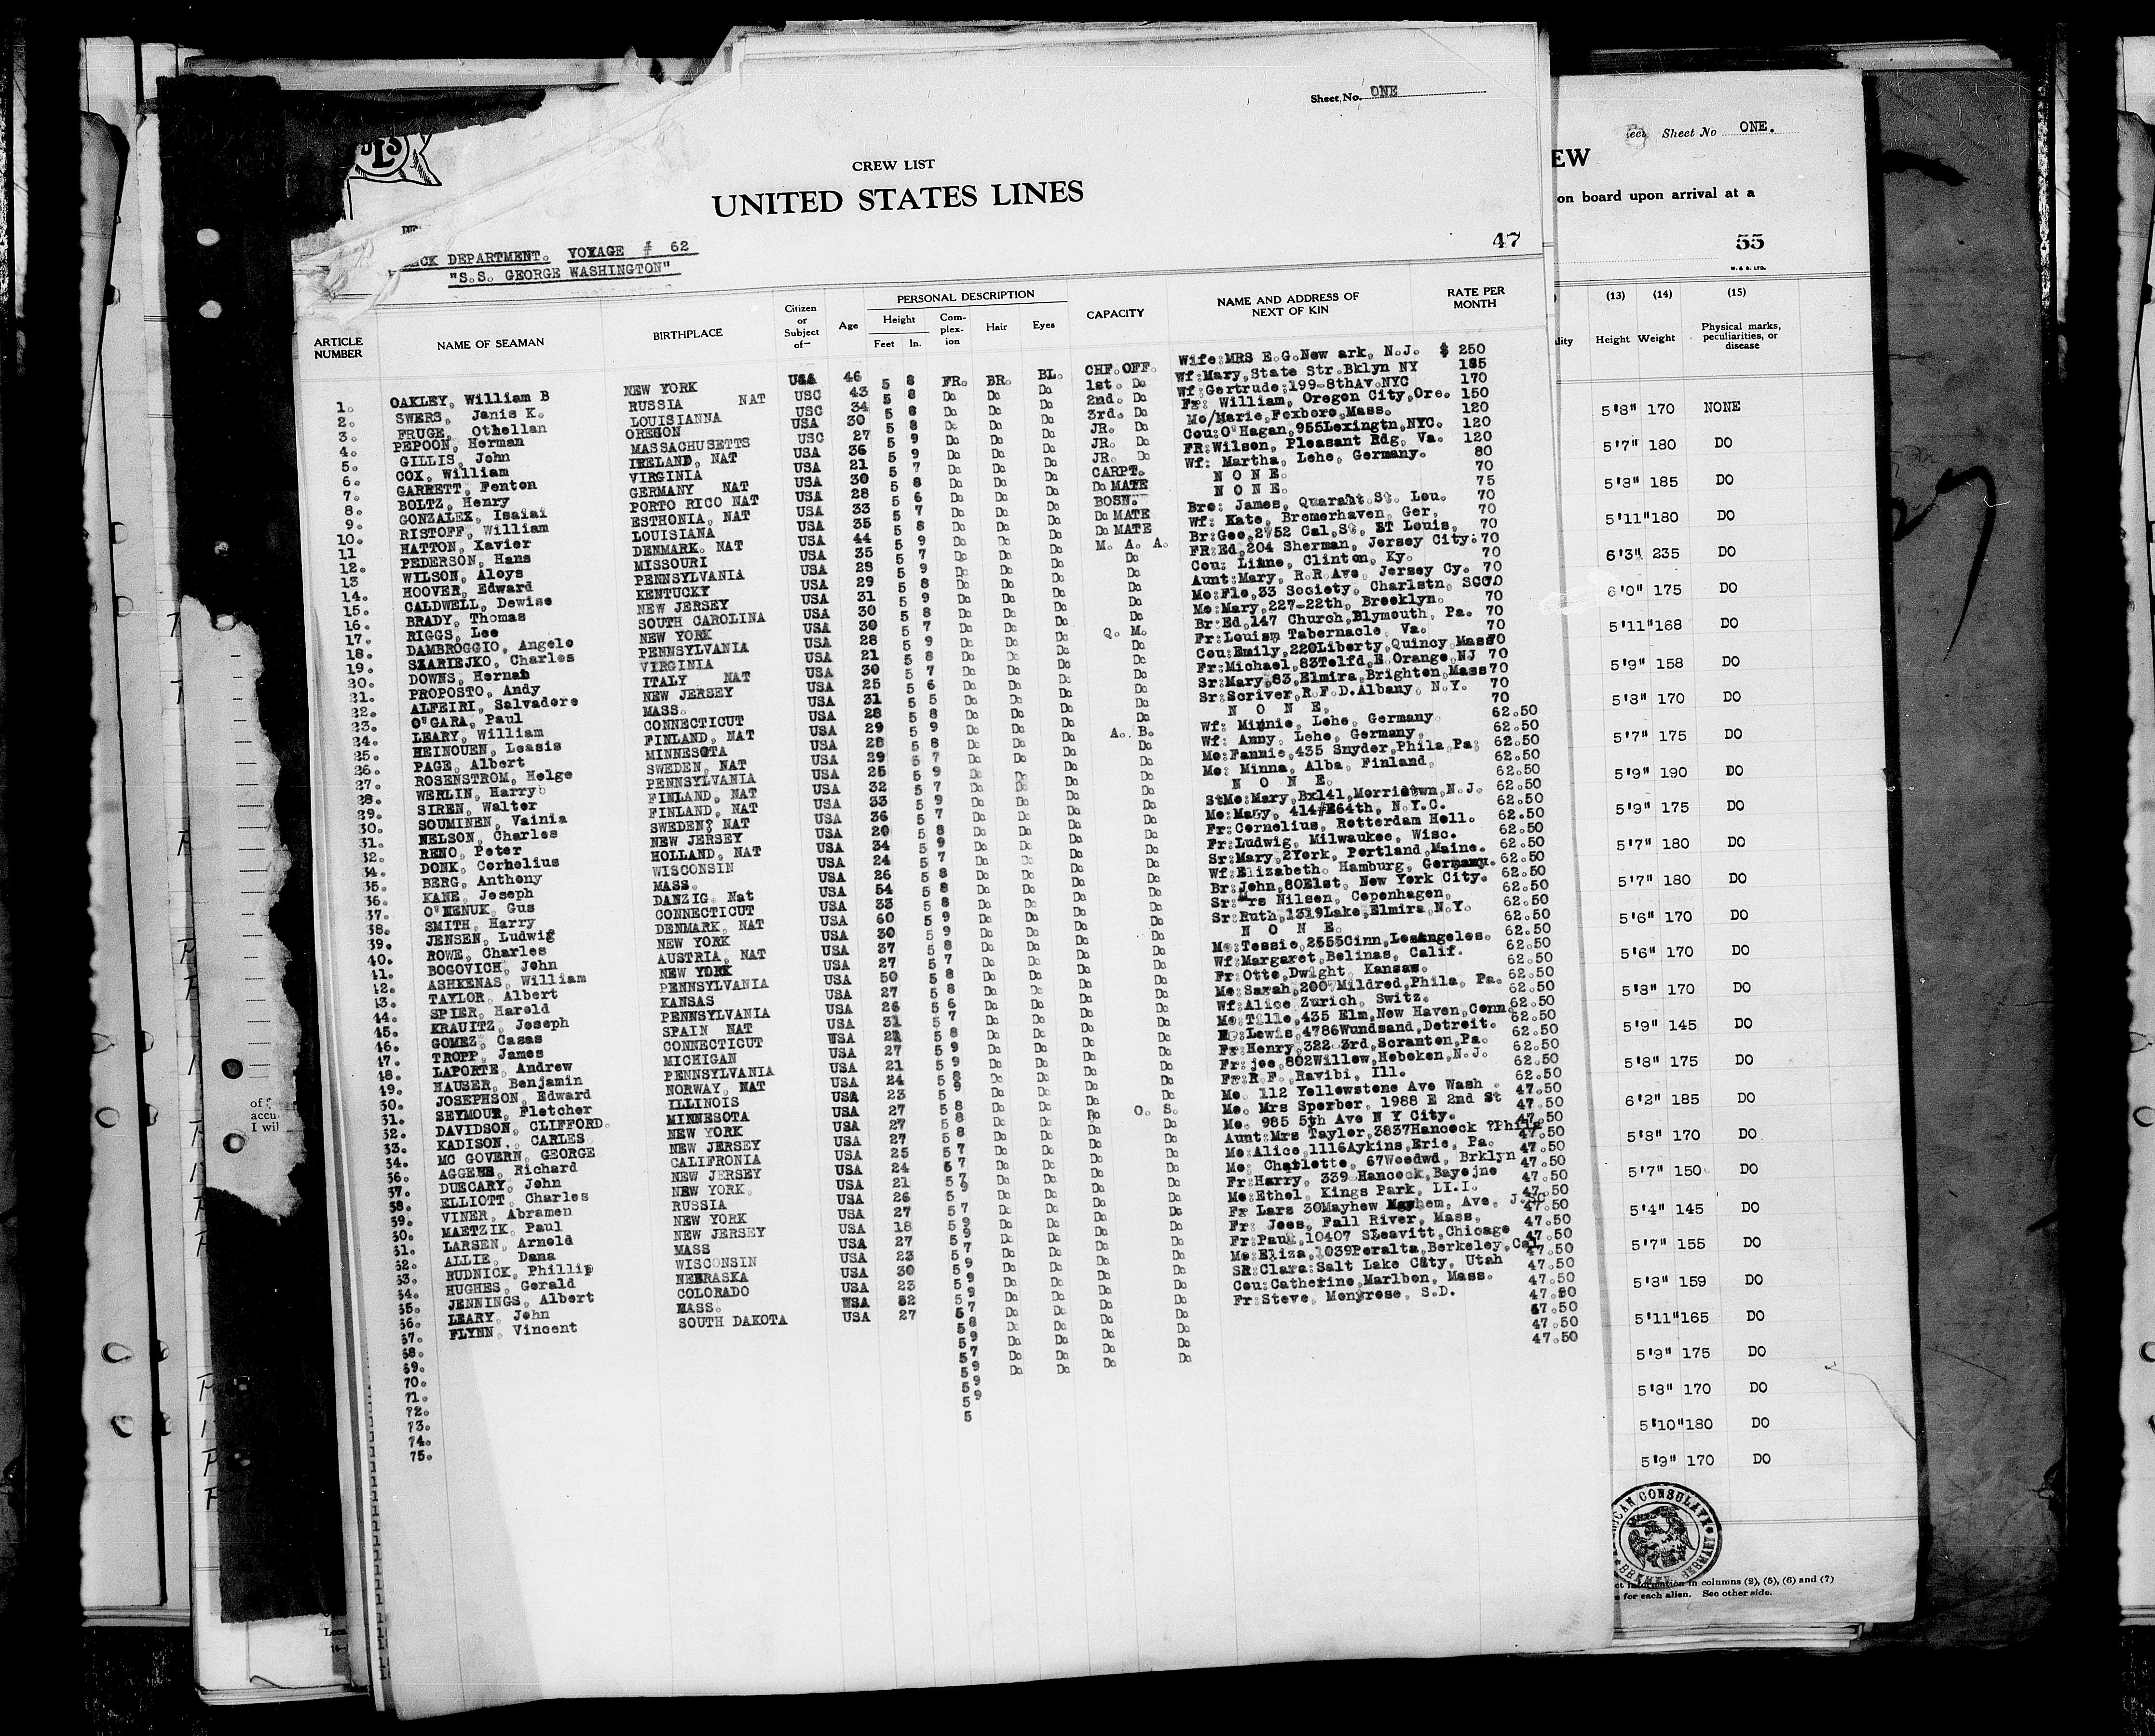 Sheet No. ONE
CREW LIST
UNITED STATES LINES
47
DECK DEPARTMENT. VOYAGE # 62
"S.S. GEORGE WASHINGTON"
ARTICLE NUMBER NAME OF SEAMAN BIRTHPLACE Citizen or Subject of— Age PERSONAL DESCRIPTION Height Feet In. Com-plex-ion Hair Eyes CAPACITY NAME AND ADDRESS OF NEXT OF KIN RATE PER MONTH
1. OAKLEY, William B NEW YORK USA 46 5 8 FR. BR. BL. CHF.OFF. Wife:MRS E.G.New ark, N.J. $ 250
2. SWERS, Janis K. RUSSIA NAT USC 43 5 8 Do Do Do 1st. Do Wf:Mary,State Str.Bklyn NY 185
3. FRUGE, Othellan LOUISIANNA USC 34 5 8 Do Do Do 2nd. Do Wf:Gertrude:199-8thAv.NYC 170
4. PEPOON, Herman OREGON USA 30 5 8 Do Do Do 3rd. Do Fr: William, Oregon City,Ore. 150
5. GILLIS, John MASSACHUSETTS USC 27 5 9 Do Do Do JR. Do Mo/Marie,Foxboro,Mass. 120
6. COX, William IRELAND, NAT USA 36 5 9 Do Do Do JR. Do Cou:O'Hagan,955Lexingtn,NYC. 120
7. GARRETT, Fenton VIRGINIA USA 21 5 7 Do Do Do JR. Do FR:Wilson, Pleasant Rdg, Va. 120
8. BOLTZ, Henry GERMANY NAT USA 30 5 8 Do Do Do CARPT. Wf: Martha, Lehe, Germany. 80
9. GONZALEX, Isaiai PORTO RICO NAT USA 28 5 6 Do Do Do Do MATE N O N E. 70
10. RISTOFF, William ESTHONIA, NAT USA 33 5 7 Do Do Do BOSN. N O N E. 75
11 HATTON, Xavier LOUISIANA USA 35 5 8 Do Do Do Do MATE Bro: James, Quaraht.St. Lou. 70
12. PEDERSON, Hans DENMARK. NAT USA 44 5 9 Do Do Do Do MATE Wf: Kate, Bremerhaven, Ger, 70
13 WILSON, Aloys MISSOURI USA 35 5 7 Do Do Do M. A. A. Br:Geo,2752 Cal,St, ST Louis, 70
14. HOOVER, Edward PENNSYLVANIA USA 28 5 9 Do Do Do Do FR:Ed,204 Sherman, Jersey City:70
15. CALDWELL, Dewise KENTUCKY USA 29 5 8 Do Do Do Do Cou: Linne, Clinton, Ky. 70
16. BRADY, Thomas NEW JERSEY USA 31 5 9 Do Do Do Do Aunt:Mary, R.R.Ave, Jersey Cy. 70
17. RIGGS, Lee SOUTH CAROLINA USA 30 5 8 Do Do Do Do Mo:Flo,33 Society, Charlstn, SC70
18. DAMBROGGIO, Angelo NEW YORK USA 30 5 7 Do Do Do Do Mo:Mary,227-22th, Brooklyn. 70
19. SZARIEJKO, Charles PENNSYLVANIA USA 28 5 9 Do Do Do Q. M. Br:Ed,147 Church,Blymouth, Pa. 70
20. DOWNS, Hernan VIRGINIA USA 21 5 8 Do Do Do Do Fr:Louism Tabernacle, Va. 70
21. PROPOSTO, Andy ITALY NAT USA 30 5 7 Do Do Do Do Cou:Emily,220Liberty,Quincy Mass70
22. ALFEIRI, Salvadore NEW JERSEY USA 25 5 6 Do Do Do Do Fr:Michael,83Telfd,E.Orange,NJ 70
23. O'GARA, Paul MASS. USA 31 5 5 Do Do Do Do Sr:Mary,83,Elmira,Brighton,Mass70
24. LEARY, William CONNECTICUT USA 28 5 8 Do Do Do Do Sr:Scriver,R.F.D.Albany, N.Y. 70
25. HEINOUEN, Leasis FINLAND, NAT USA 29 5 9 Do Do Do Do N O N E, 70
26. PAGE, Albert MINNESOTA USA 28 5 8 Do Do Do A. B. Wf: Minnie, Lehe, Germany. 62.50
27. ROSENSTROM, Helge SWEDEN, NAT USA 29 5 7 Do Do Do Do Wf: Anny, Lehe, Germany, 62.50
28. WERLIN, Harry PENNSYLVANIA USA 25 5 9 Do Do Do Do Mo:Fannie,435 Snyder,Phila,Pa; 62.50
29. SIREN, Walter FINLAND, NAT USA 32 5 7 Do Do Do Do Mo: Minna, Alba, Finland, 62.50
30. SOUMINEN, Vainia FINLAND, NAT USA 33 5 9 Do Do Do Do N O N E. 62.50
31. NELSON, Charles SWEDEN? NAT USA 36 5 7 Do Do Do Do StMo:Mary,Bx141,Morristwn,N.J. 62.50
32. RENO, Peter NEW JERSEY USA 20 5 8 Do Do Do Do Mo:Mary, 414#E64th, N.Y.C. 62.50
34. DONK, Cornelius HOLLAND, NAT USA 34 5 9 Do Do Do Do Fr:Cornelius, Rotterdam Holl. 62.50
35. BERG, Anthony WISCONSIN USA 24 5 7 Do Do Do Do Fr:Ludwig, Milwaukee, Wisc. 62.50
36. KANE, Joseph MASS. USA 26 5 8 Do Do Do Do Sr:Mary,2York, Portland,Maine. 62.50
37. O'NENUK, Gus DANZIG. Nat USA 54 5 8 Do Do Do Do Wf:Elizabeth. Hamburg, Germany. 62.50
38. SMITH, Harry CONNECTICUT USA 33 5 8 Do Do Do Do Br:John,80E1st, New York City. 62.50
39. JENSEN, Ludwig DENMARK, NAT USA 60 5 9 Do Do Do Do Sr:Mrs Nilsen, Copenhagen, 62.50
40. ROWE, Charles NEW YORK USA 30 5 9 Do Do Do Do Sr:Ruth,1319Lake,Elmira,N.Y. 62.50
41. BOGOVICH, John AUSTRIA, NAT USA 37 5 8 Do Do Do Do N O N E. 62.50
42. ASHKENAS, William NEW YORK USA 27 5 7 Do Do Do Do Mo:Tessie,2555Cinn,LosAngeles. 62.50
43. TAYLOR, Albert PENNSYLVANIA USA 50 5 8 Do Do Do Do Wf:Margaret,Belinas, Calif. 62.50
44. SPIER, Harold KANSAS USA 27 5 8 Do Do Do Do Fr:Otto,Dwight, Kansas. 62.50
45. KRAUITZ, Joseph PENNSYLVANIA USA 26 5 6 Do Do Do Do Mo:Sarah,2007Mildred,Phila, Pa. 62.50
46. GOMEZ, Casas SPAIN NAT USA 31 5 7 Do Do Do Do Wf:Alice Zurich, Switz. 62.50
47. TROPP, James CONNECTICUT USA 22 5 8 Do Do Do Do Mo:Tille,435 Elm,New Haven,Conn. 62.50
48. LAPORTE, Andrew MICHIGAN USA 27 5 9 Do Do Do Do Lewis,4786Wundsand,Detroit. 62.50
49. HAUSER, Benjamin PENNSYLVANIA USA 21 5 9 Do Do Do Do Fr:Henry,322 3rd,Scranton,Pa. 62.50
50. JOSEPHSON, Edward NORWAY, NAT USA 24 5 8 Do Do Do Do Fr:joe,802Willow,Hoboken,N.J. 62.50
51. SEYMOUR, Fletcher ILLINOIS USA 23 5 9 Do Do Do Do Fr:R.F.,Ravibi, Ill. 62.50
52. DAVIDSON, CLIFFORD. MINNESOTA USA 27 5 8 Do Do Do O. S. Mo. 112 Yellowstone Ave Wash . 47.50
53. KADISON,. CARLES NEW YORK USA 27 5 8 Do Do Do Do Mo. Mrs Sperber, 1988 E 2nd St 47.50
54. MC GOVERN, GEORGE NEW JERSEY USA 27 5 8 Do Do Do Do Mo. 985 5th Ave N Y City. 47.50
56. AGGENS, Richard CALIFRONIA USA 25 5 7 Do Do Do Do Aunt:Mrs Taylor,3837Hancock ?Phila 47.50
57. DUECARY, John NEW JERSEY USA 24 5 7 Do Do Do Do Mo:Alice,1116Aykins,Erie, Pa. 47.50
58. ELLIOTT, Charles NEW YORK. USA 21 5 7 Do Do Do Do Mo: Charlotte, 67Woodwd, Brklyn 47.50
59. VINER, Abramen RUSSIA USA 26 5 9 Do Do Do Do Fr:Harry, 339 Hancock,Bayojne 47.50
60. MAETZIK, Paul NEW YORK USA 27 5 7 Do Do Do Do Mo:Ethel, Kings Park, LI.I. 47.50
61. LARSEN, Arnold NEW JERSEY USA 18 5 9 Do Do Do Do Fr Lars 30Mayhew Mayhem, Ave, J.SC. 47.50
62. ALLIE, Dana MASS USA 27 5 7 Do Do Do Do Fr: Joes, Fall River, Mass, 47.50
63. RUDNICK, Phillip WISCONSIN USA 23 5 7 Do Do Do Do Fr:Paul,10407 SLeavitt,Chicago 47.50
64. HUGHES, Gerald NEBRASKA USA 30 5 9 Do Do Do Do Mo:Eliza,1039Peralta,Berkeley,Cal 47.50
65. JENNINGS, Albert COLORADO USA 23 5 9 Do Do Do Do SR:Clara:Salt Lake City, Utah 47.50
66. LEARY, John MASS. USA 32 5 9 Do Do Do Do Cou:Catherine,Marlbon, Mass. 47.50
67. FLYNN, Vincent SOUTH DAKOTA USA 27 5 7 Do Do Do Do Fr:Steve, Montrose, S.D. 47.50
68. 5 8 47.50
69. 5 9 47.50
70. 5 7 47.50
71. 5 9
72. 5 9
73. 5 9
74. 5
75.
Sheet No ONE.
EW
on board upon arrival at a
55
W. & S. LTD.
(13) (14) (15)
Height Weight Physical marks, peculiarities, or disease
5'8" 170 NONE
5'7" 180 DO
5'8" 185 DO
5'11"180 DO
6'3" 235 DO
6'0" 175 DO
5'11"168 DO
5'9" 158 DO
5'8" 170 DO
5'7" 175 DO
5'9" 190 DO
5'9" 175 DO
5'7" 180 DO
5'7" 180 DO
5'6" 170 DO
5'6" 170 DO
5'8" 170 DO
5'9" 145 DO
5'8" 175 DO
6'2" 185 DO
5'8" 170 DO
5'7" 150 DO
5'4" 145 DO
5'7" 155 DO
5'8" 159 DO
5'11"165 DO
5'9" 175 DO
5'8" 170 DO
5'10"180 DO
5'9" 170 DO
AMERICAN CONSULATE
information in columns (2), (5), (6) and (7)
for each alien. See other side.
I wil